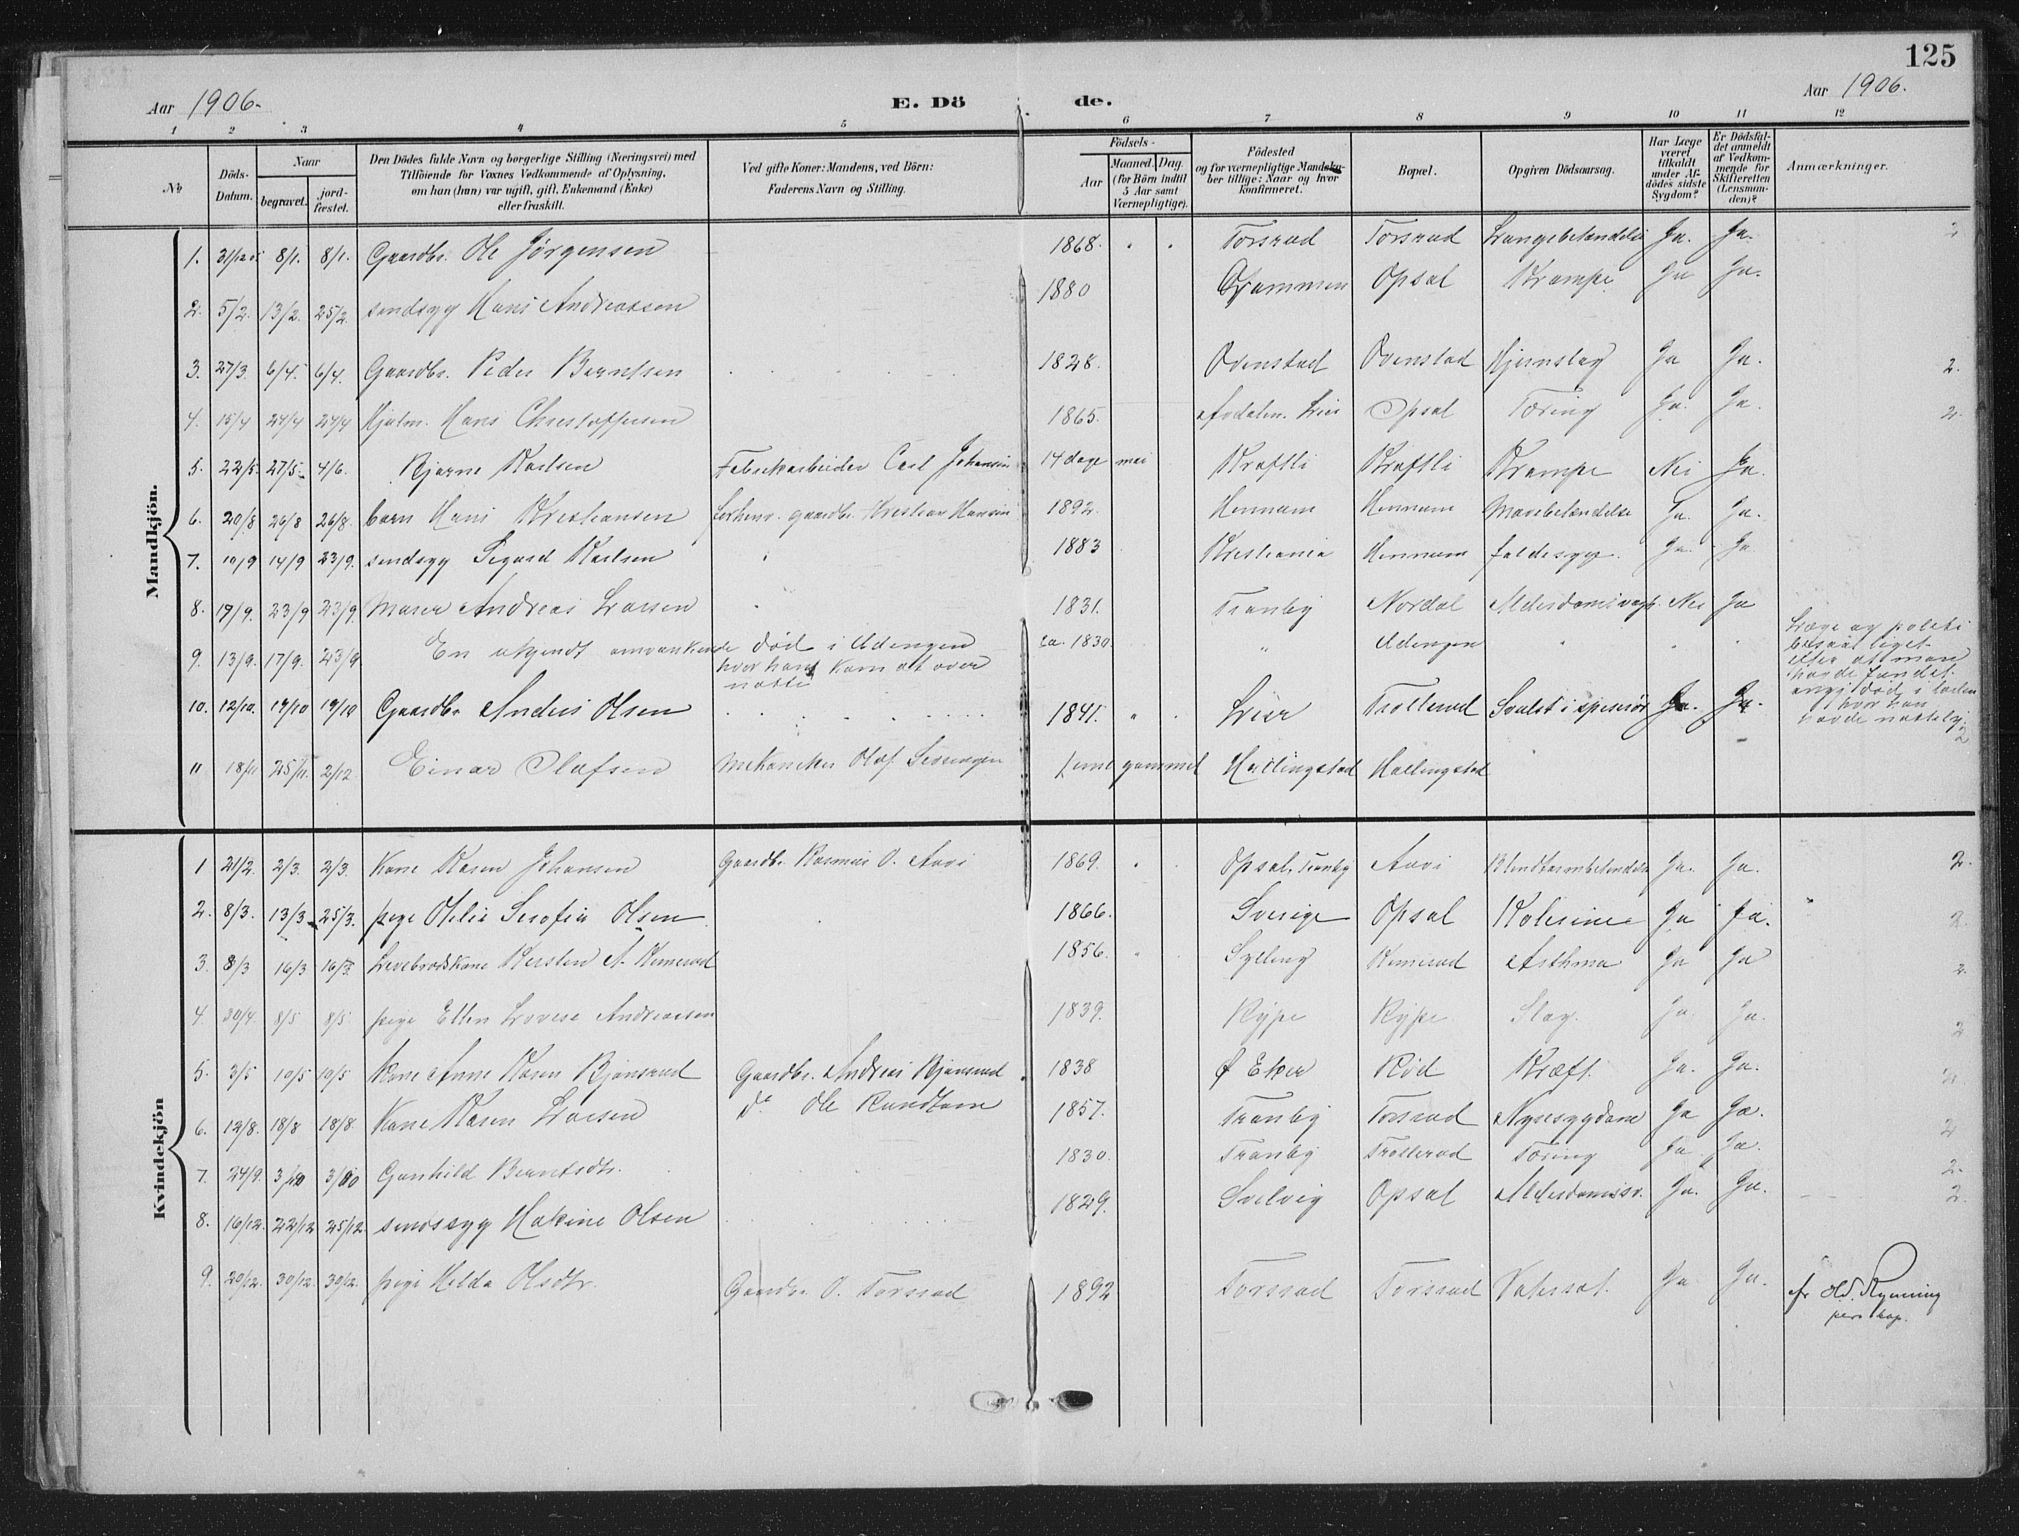 125
Aar 1906. E. Dö de. Aar 1906.
1 2 3 4 5 6 7 8 9 10 11 12
No
Döds-Datum.
Naar
begravet.
jord-fæstet.
Den Dödes fulde Navn og borgerlige Stilling (Næringsvei) med
Tilföiende for Voxnes Vedkommende af Oplysning,
om han (hun) var ugift, gift, Enkemand (Enke)
eller fraskilt.
Ved gifte Koner: Mandens, ved Börn:
Faderens Navn og Stilling.
Födsels-
Aar
Maaned. Dag.
(for Börn indtil
5 Aar samt
Værnepligtige).
Födested
og for værnepligtige Mandska-
ber tillige: Naar og hvor
konfirmeret.
Bopæl.
Opgiven Dödsaarsag.
Har Læge
været
tilkaldt
under Af-
dödes sidste
Sygdom?
Er Dödsfal-
det anmeldt
af Vedkom-
mende for
Skifteretten
(Lensman-
den)?
Anmærkninger.
Mandkjön.
1. 31/12 05 8/1. 8/1. Gaardbr. Ole Jörgensen 1868. Torsrud Torsrud Lungebetændelse Ja. Ja. 2
2. 5/2. 13/2. 25/2. sindsyg Hans Andreassen 1880 Drammen Opsal Krampe Ja Ja.
3. 27/3. 6/4. 6/4. Gaardbr. Peder Berntsen 1828. Ovenstad Ovenstad Hjernslag Ja Ja. 2.
4. 15/4 24/4 24/4 Hjulm. Hans Christoffersen 1865. Lier Opsal Tæring Ja. Ja. 2.
5. 22/5. 27/5. 4/6. Bjarne Karlsen Fabrikarbeider Carl Johansen 14 dage mai Kraftli Kraftli Krampe Nei Ja.
6. 20/8 26/8 26/8. barn Hans Kristiansen gaardbr. Kristian Hansen 1892. Hennum Hennum Mavebetændelse Ja. Ja.
7. 10/9 14/9 23/9. sindsyg Sigurd Karlsen 1883 Kristiania Hennum faldesyge. Ja. Ja
8. 17/9. 23/9 23/9. Murer Andreas Larsen 1831. Tranby Nordal Alderdomssvagh. Nei Ja
9. 13/9. 17/9. 23/9 En ukjendt omvankende död i Udengen ca. 1830. " Udengen
hvor han kom at over
natte
Læge og politi
besaa liget
efter at man
havde fundet
død i laden
hvor han
havde nattely.
10. 12/10. 19/10 19/10 Gaardbr Anders Olsen 1841. Lier Trollerud Svulst i spiserör Ja. Ja. 2
11 18/11 25/11. 2/12 Einar Olafsen Mekaniker Olaf gammel Hallingstad Hallingstad
Kvindekjön
1 21/2. 2/3. 2/3. Kone Karen Johansen Gaardbr. Rasmus O. Aavi 1869. Opsal, Tranby Aavi Blindtarmbetændelse Ja. Ja. 2.
2. 8/3. 13/3. 25/3. pige Otelie Serofia Olsen. 1866. Sverige Opsal Kolerine Ja Ja. 2.
3. 8/3 16/3 16/3. Levebrödskone Kersten A. Kimerud 1856. Sylling Kimerud Asthma Ja Ja 2.
4. 30/4 8/5 8/5 pige Ellen Lovise Andreasen 1839. Rype Rype Slag. Ja. Ja. 2
5. 3/5 10/5 10/5 Kone Anne Karen Bjönsrud Gaardbr. Andreas Bjönsrud 1838 Ø Eker Röd Kræft. Ja. Ja. 2.
6. 12/8. 18/8 18/8. Kone Karen Larsen do Ole Rundtom 1857. Tranby Torsrud Nyresygdom Ja Ja. 2
7. 24/9. 3/10 3/10 Gunhild Berntsdtr. 1830. Tranby Trollerud Tæring Ja Ja. 2.
8. 16/12. 22/12 25/12. sindssyg Hakine Olsen 1829. Svelvig Opsal Alderdomssv. Ja. Ja. 2.
9. 20/12. 30/12. 30/12. pige Hilda Olsdtr Gaardbr O. Torsrud 1892 Torsrud Torsrud Ja Ja.